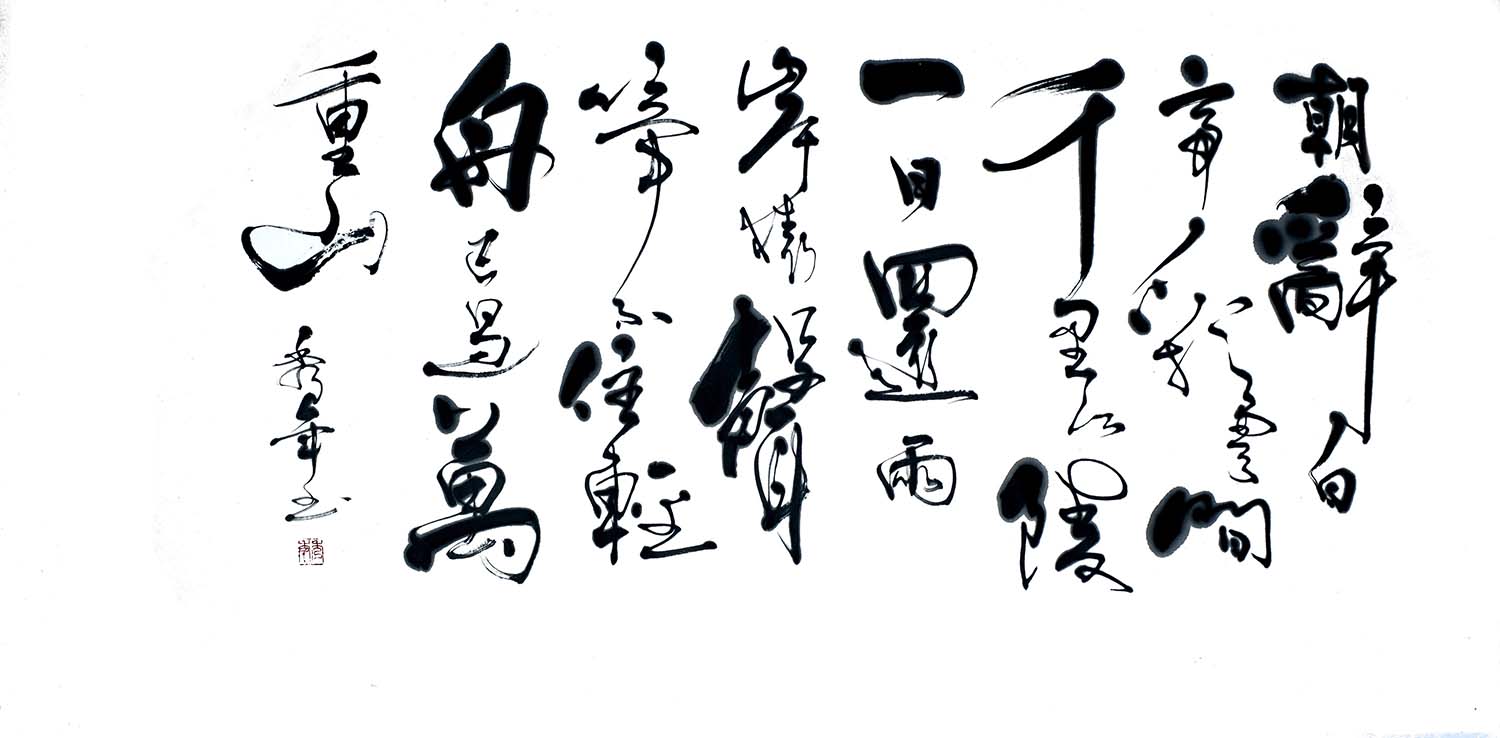 朝辭白
帝彩雲間
千里江陵
一日還兩
岸猿聲
啼不住輕
舟已過萬
重山
年书